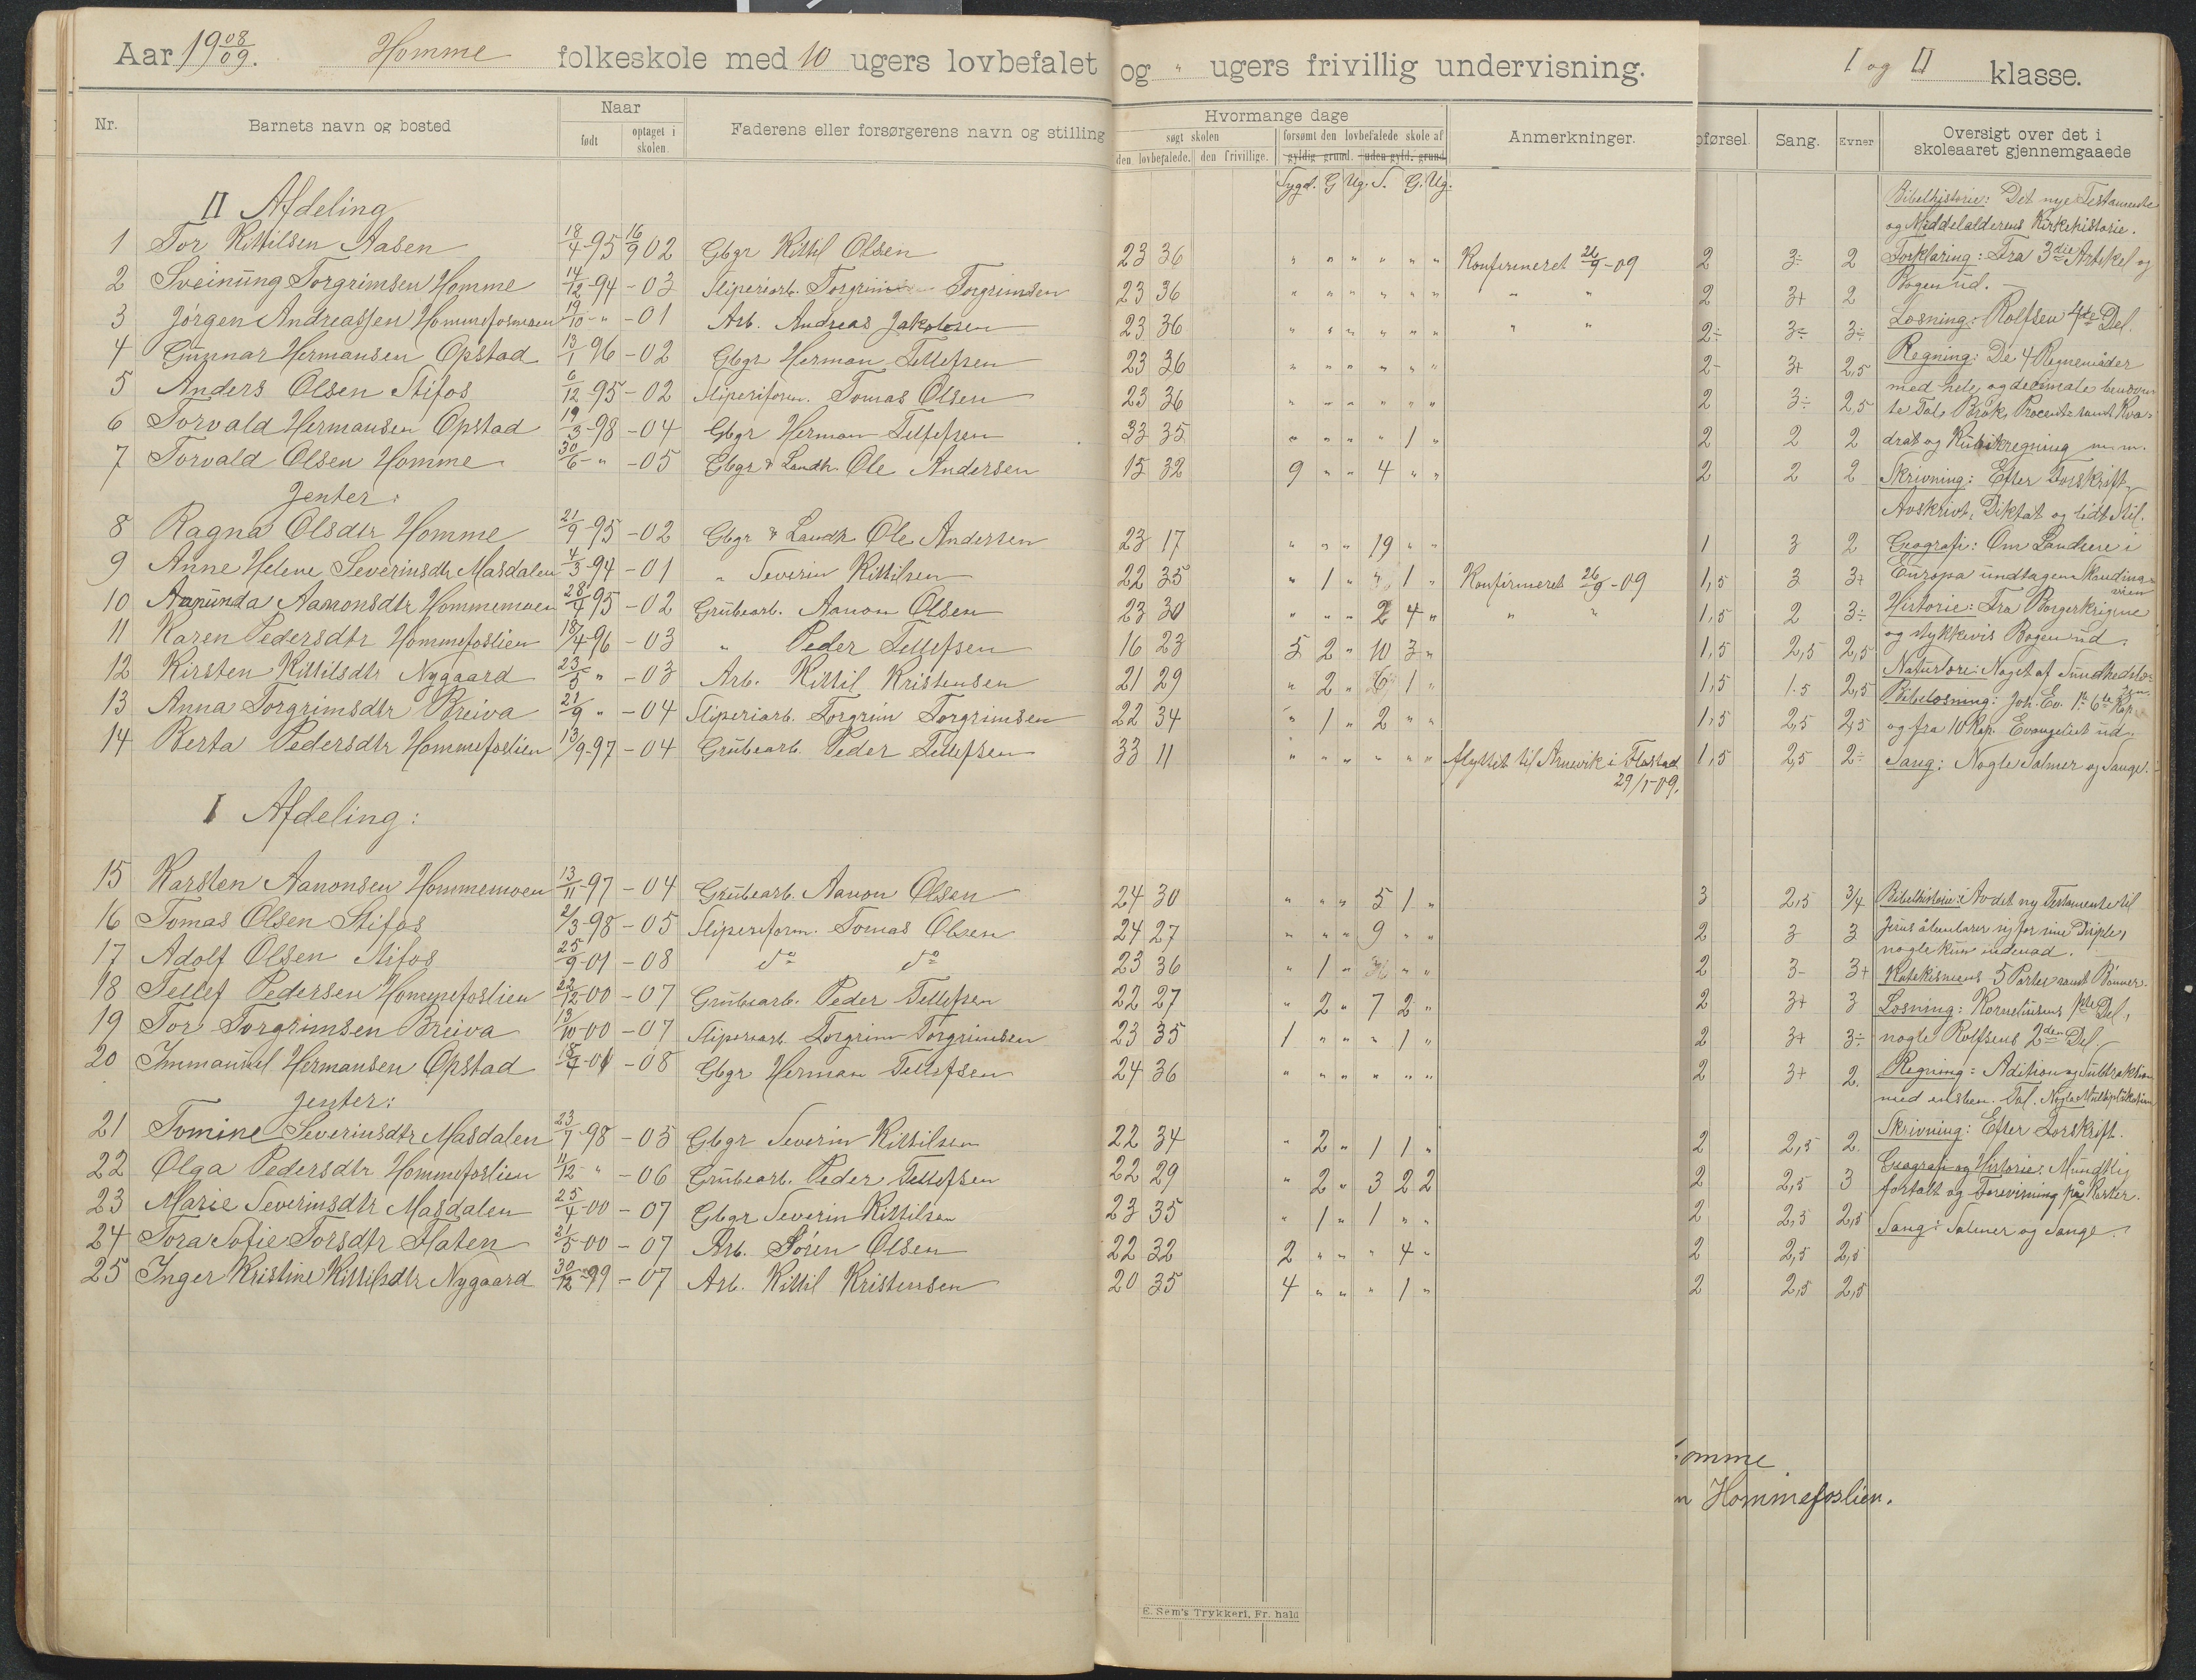 Aar 19 08/09. Homme folkeskole med 10 ugers lovbefalet og " ugers frivillig undervisning. I og II klasse.
Nr. Barnets navn og bosted Naar født optaget i skolen. Faderens eller forsørgerens navn og stilling Hvormange dage søgt skolen den lovbefalede. den frivillige. forsømt den lovbefalede skole af gyldig grund. uden gyld. grund Anmerkninger. pførsel. Sang. Evner Oversigt over det i skoleaaret gjennemgaaede
Sygd. G Ug. S. G. Ug.
II Afdeling
1 Tor Kittilsen Aasen 18/4-95 16/9 02 Gbgr Kittil Olsen 23 36 " " " " " " Konfirmeret 26/9-09 2 3÷ 2
2 Sveinung Torgrimsen Homme 14/12-94 -03 Sliperiarb. Torgrim Torgrimsen 23 36 " " " " " " " " 2 3+ 2
3 Jørgen Andreassen Hommefosmoen 19/10-" -01 Arb. Andreas Jakobsen 23 36 " " " " " " " " 2÷ 3÷ 3÷
4 Gunnar Hermansen Opstad 13/1 96 -02 Gbgr Herman Tellefsen 23 36 " " " " " " 2- 3+ 2,5
5 Anders Olsen Stifos 6/12-95 -02 Sliperiform. Tomas Olsen 23 36 " " " " " " 2 3÷ 2,5
6 Torvald Hermansen Opstad 19/3-98 -04 Gbgr Herman Tellefsen 33 35 " " " " 1 " 2 2 2
7 Torvald Olsen Homme 30/6-" -05 Gbgr & Landh. Ole Andersen 15 32 9 " " 4 " " 2 2 2
Jenter:
8 Ragna Olsdtr Homme 21/9-95 -02 Gbgr & Landh Ole Andersen 23 17 " " " 19 " " 1 3 2
9 Anne Helene Severinsdtr Masdalen 4/3-94 -01 " Severin Kittilsen 22 35 " 1 " " 1 " Konfirmeret 26/9-09 1,5 3 3+
10 Aanunda Aanonsdtr Hommemoen 28/4 95 -02 Grubearb. Aanon Olsen 23 30 " " " 2 4 " " " 1,5 2 3÷
11 Karen Pedersdtr Hommefoslien 18/4-96 -03 " Peder Tellefsen 16 23 5 2 " 10 3 " 1,5 2,5 2,5
12 Kirsten Kittilsdtr Nygaard 23/5 " -03 Arb. Kittil Kristensen 21 29 " 2 " 6 1 " 1,5 1.5 2,5
13 Anna Torgrimsdtr Breiva 21/9 " -04 Sliperiarb. Torgrim Torgrimsen 22 34 " 1 " 2 " " 1,5 2,5 2,5
14 Berta Pedersdtr Hommefoslien 13/9-97 -04 Grubearb. Peder Tellefsen 33 11 " " " " " " flyttet til Arnevik i Flostad 29/1-09. 1,5 2,5 2÷
Bibelhistorie: Det nye Testamente
og Middelalderens Kirkehistorie.
Forklaring: Fra 3die Artikel og
Bogen ud.
Læsning: Rolfsen 4de Del.
Regning: De 4 Regnemåder
med hele og decimale benævn
te Tal. Brøk, Procent samt Kva-
drat og Kubikregning m. m.
Skrivning: Efter Forskrift,
Avskrivt, Diktat og lidt Stil.
Geografi: Om Landene i
Europa undtagen Skandina-
vien
Historie: Fra Borgerkrigene
og stykkevis Bogen ud.
Naturlære: Noget af Sundhedslæ-
Bibellæsning: Joh. Ev. 1te 6te Kap.
og fra 10 Kap. Evangeliet ud.
Sang: Nogle Salmer og Sange.
I Afdeling:
15 Karsten Aanonsen Hommemoen 13/11-97 -04 Grubearb. Aanon Olsen 24 30 " " " 5 1 " 3 2,5 3/4
16 Tomas Olsen Stifos 2/3-98 -05 Sliperiform. Tomas Olsen 24 27 " " " 9 " " 2 3 3
17 Adolf Olsen Stifos 25/9-01 -08 do do 23 36 " 1 " " " 2 3- 3+
18 Tellef Pedersen Hommefoslien 22/12-00 -07 Grubearb. Peder Tellefsen 22 27 " 2 " 7 2 " 2 3+ 3
19 Tor Torgrimsen Breiva 13/10-00 -07 Sliperiarb. Torgrim Torgrimsen 23 35 1 " " " 1 " 2 3+ 3÷
20 Immanuel Hermansen Opstad 18/4-01 -08 Gbgr Herman Tellefsen 24 36 " " " " " " 2 3+ 2.
Jenter:
21 Tomine Severinsdtr Masdalen 23/7 98 -05 Gbgr Severin Kittilsen 22 34 " 2 " 1 1 " 2 2,5 2.
22 Olga Pedersdtr Hommefoslien 11/12-" -06 Grubearb. Peder Tellefsen 22 29 " 2 " 3 2 2 2 2,5 3
23 Marie Severinsdtr Masdalen 25/4-00 -07 Gbgr Severin Kittilsen 23 35 " 1 " 1 " " 2 2,5 2,5
24 Tora Sofie Torsdtr Flaten 31/5-00 -07 Arb. Søren Olsen 22 32 2 " " " 4 " 2 2,5 2,5
25 Inger Kristine Kittilsdtr Nygaard 30/12-99 -07 Arb. Kittil Kristensen 20 35 4 " " " 1 " 2 2,5 2,5
Bibelhistorie: Av det ny Testamente til
Jesus åbenbarer sig for sine Disiple,
nogle kun indenad.
Katekismens 5 Parter samt Bønner.
Læsning: Kornelinsens 1ste Del,
nogle Rolfsens 2den Del.
Regning: Adition og Subtraktion
med ensben. Tal. Nogle Multiplikation
Skrivning: Efter Forskrift.
Geografi og Historie: Mundtlig
fortalt og Forevisning på Karter.
Sang: Salmer og Sange.
omme
n Hommefoslien.
E. Sem's Trykkeri, Fr. hald